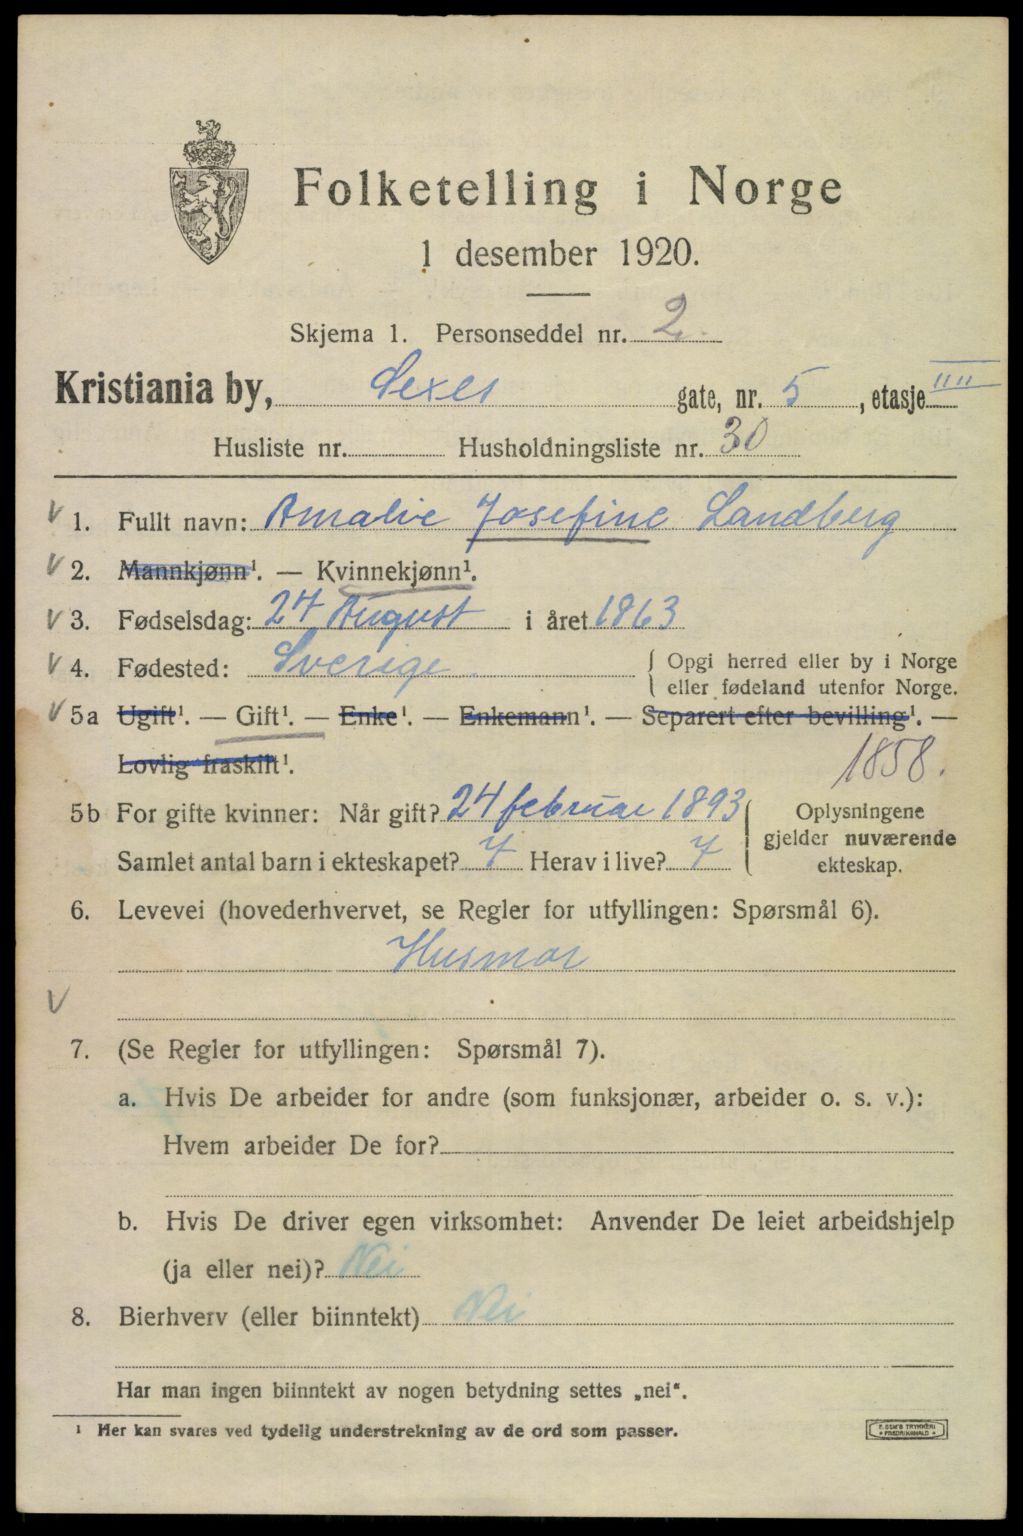 Folketelling i Norge
1 desember 1920.
Skjema 1. Personseddel nr. 2.
Kristiania by, Sexes gate, nr. 5, etasje IIII
Husliste nr. Husholdningsliste nr. 30
V 1. Fullt navn: Amalie Josefine Landberg
V 2. Mannkjønn¹. — Kvinnekjønn¹.
V 3. Fødselsdag: 24 August i året 1863
V 4. Fødested: Sverige. { Opgi herred eller by i Norge
eller fødeland utenfor Norge.
V 5a Ugift¹. — Gift¹. — Enke¹. — Enkemann¹. — Separert efter bevilling¹. —
Lovlig fraskilt¹. 1858.
5b For gifte kvinner: Når gift? 24 februar 1893 Oplysningene
gjelder nuværende
Samlet antal barn i ekteskapet? 7 Herav i live? 7 ekteskap.
6. Levevei (hovederhvervet, se Regler for utfyllingen: Spørsmål 6).
Husmor
V
7. (Se Regler for utfyllingen: Spørsmål 7).
a. Hvis De arbeider for andre (som funksjonær, arbeider o. s. v.):
Hvem arbeider De for?
b. Hvis De driver egen virksomhet: Anvender De leiet arbeidshjelp
(ja eller nei)? Nei
8. Bierhverv (eller biinntekt) Nei
Har man ingen biinntekt av nogen betydning settes „nei“.
¹ Her kan svares ved tydelig understrekning av de ord som passer.
TRYKKERI
FREDRIKSHALD